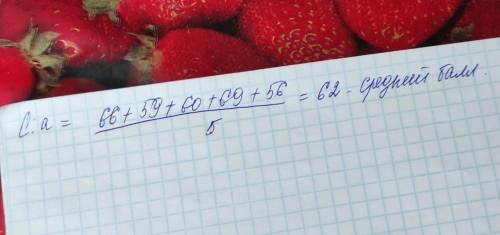 С.а = (66 + 59 + 60 + 69 + 56) / 5 = 62 - средний балл.